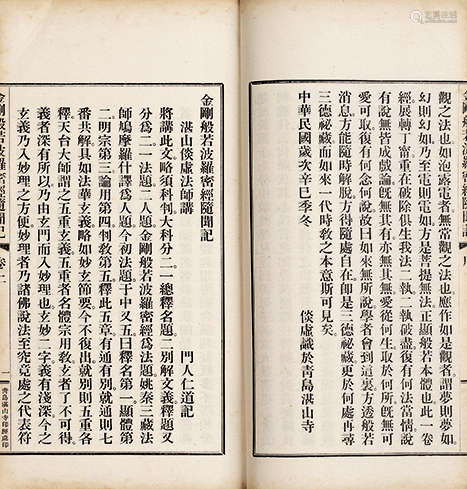 金剛般若波羅密經隨聞記 序
觀之法也如泡露電者無常觀之法也應作如是觀者謂夢則夢如
幻則幻如乃至電則電如方是菩提無法正顯般若本體也此一卷
經展轉丁甯重在破除俱生我法二執二執破盡復有何法當情說
有說無皆成戲論旣無其有亦無其無愛從何生取於何所旣無可
愛可取復有何念何說故曰如來無所說學者會到這裏方透般若
消息方能隨時解脫方得隨處自在卽是三德祕藏更於何處再尋
三德祕藏而如來一代時敎之本意斯可見矣
中華民國歲次辛巳季冬
倓虛識於靑島湛山寺
金剛般若波羅密經隨聞記
湛山倓虛法師講 門人仁道記
將講此文略須科判大科分二一總釋名題二別解文義釋題又
分爲二一法題二人題金剛般若波羅密經爲法題姚秦三藏法
師鳩摩羅什譯爲人題今初法題于中又五曰釋名第一顯體第
二明宗第三論用第四判敎第五釋此五章有通有別就通則七
番共解具如法華玄義略如妙玄節要今不復出就別則五重各
釋天台大師謂之五重玄義五重者名體宗用敎玄者了不可得
義者深有所以乃由玄門而入妙理也玄妙二字義有淺深今之
玄義乃入妙理之方便妙理者乃諸佛說法至究竟處之代表符
金剛般若波羅密經隨聞記 卷一 一 靑島湛山寺印經處印